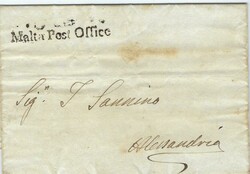 Malta Post Office
Sigr. T Sannino
Alessandria